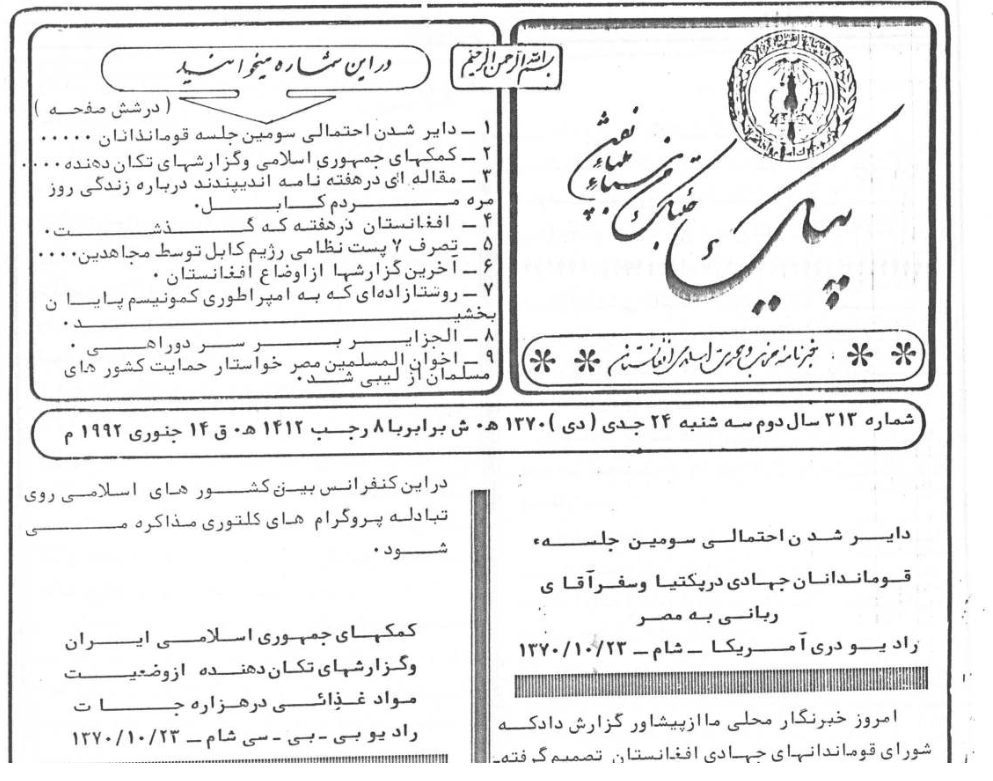 بسم الله الرحمن الرحیم
در این شماره میخوانید
( درشش صفحه )
۱ ــ دایر شدن احتمالی سومین جلسه قوماندانان ۰۰۰۰۰
۲ ــ کمکهای جمهوری اسلامی وگزارشهای تکان دهنده ۰۰۰۰
۳ ــ مقاله ای درهفته نامه اندیپندند درباره زندگی روز
مره مردم کابل۰
۴ ــ افغانستان درهفته که گذشت۰
۵ ــ تصرف ۷ پست نظامی رژیم کابل توسط مجاهدین۰۰۰۰
۶ ــ آخرین گزارشها ازاوضاع افغانستان ۰
۷ ــ روستازاده‌ای که به امپراطوری کمونیسم پایان
بخشید۰
۸ ــ الجزایر بر سر دوراهی ۰
۹ ــ اخوان المسلمین مصر خواستار حمایت کشور های
مسلمان از لیبی شد۰
خبرنامه حزب وحدت اسلامی افغانستان
شماره ۳۱۳ سال دوم سه شنبه ۲۴ جدی ( دی ) ۱۳۷۰ ه۰ ش برابربا ۸ رجب ۱۴۱۲ ه۰ ق ۱۴ جنوری ۱۹۹۲ م
دایر شدن احتمالی سومین جلسهء
قوماندانان جهادی درپکتیا وسفرآقای
ربانی به مصر
رادیو دری آمریکا ــ شام ــ ۱۳۷۰/۱۰/۲۳
امروز خبرنگار محلی ماازپیشاور گزارش دادکه
شورای قوماندانهای جهادی افغانستان تصمیم گرفته
دراین کنفرانس بین کشور های اسلامی روی
تبادله پروگرام های کلتوری مذاکره می
شود۰
کمکهای جمهوری اسلامی ایران
وگزارشهای تکان دهنده ازوضعیت
مواد غذائی درهزاره جات
رادیو بی ـ بی ـ سی شام ــ ۱۳۷۰/۱۰/۲۳